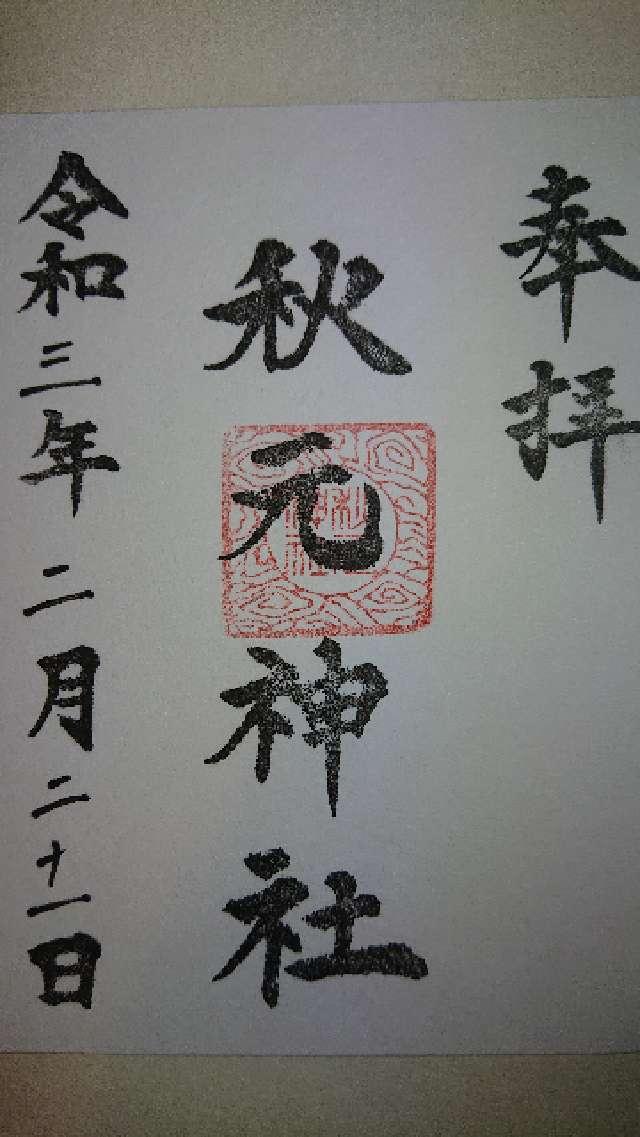 奉拝
秋元神社
令和三年二月二十一日